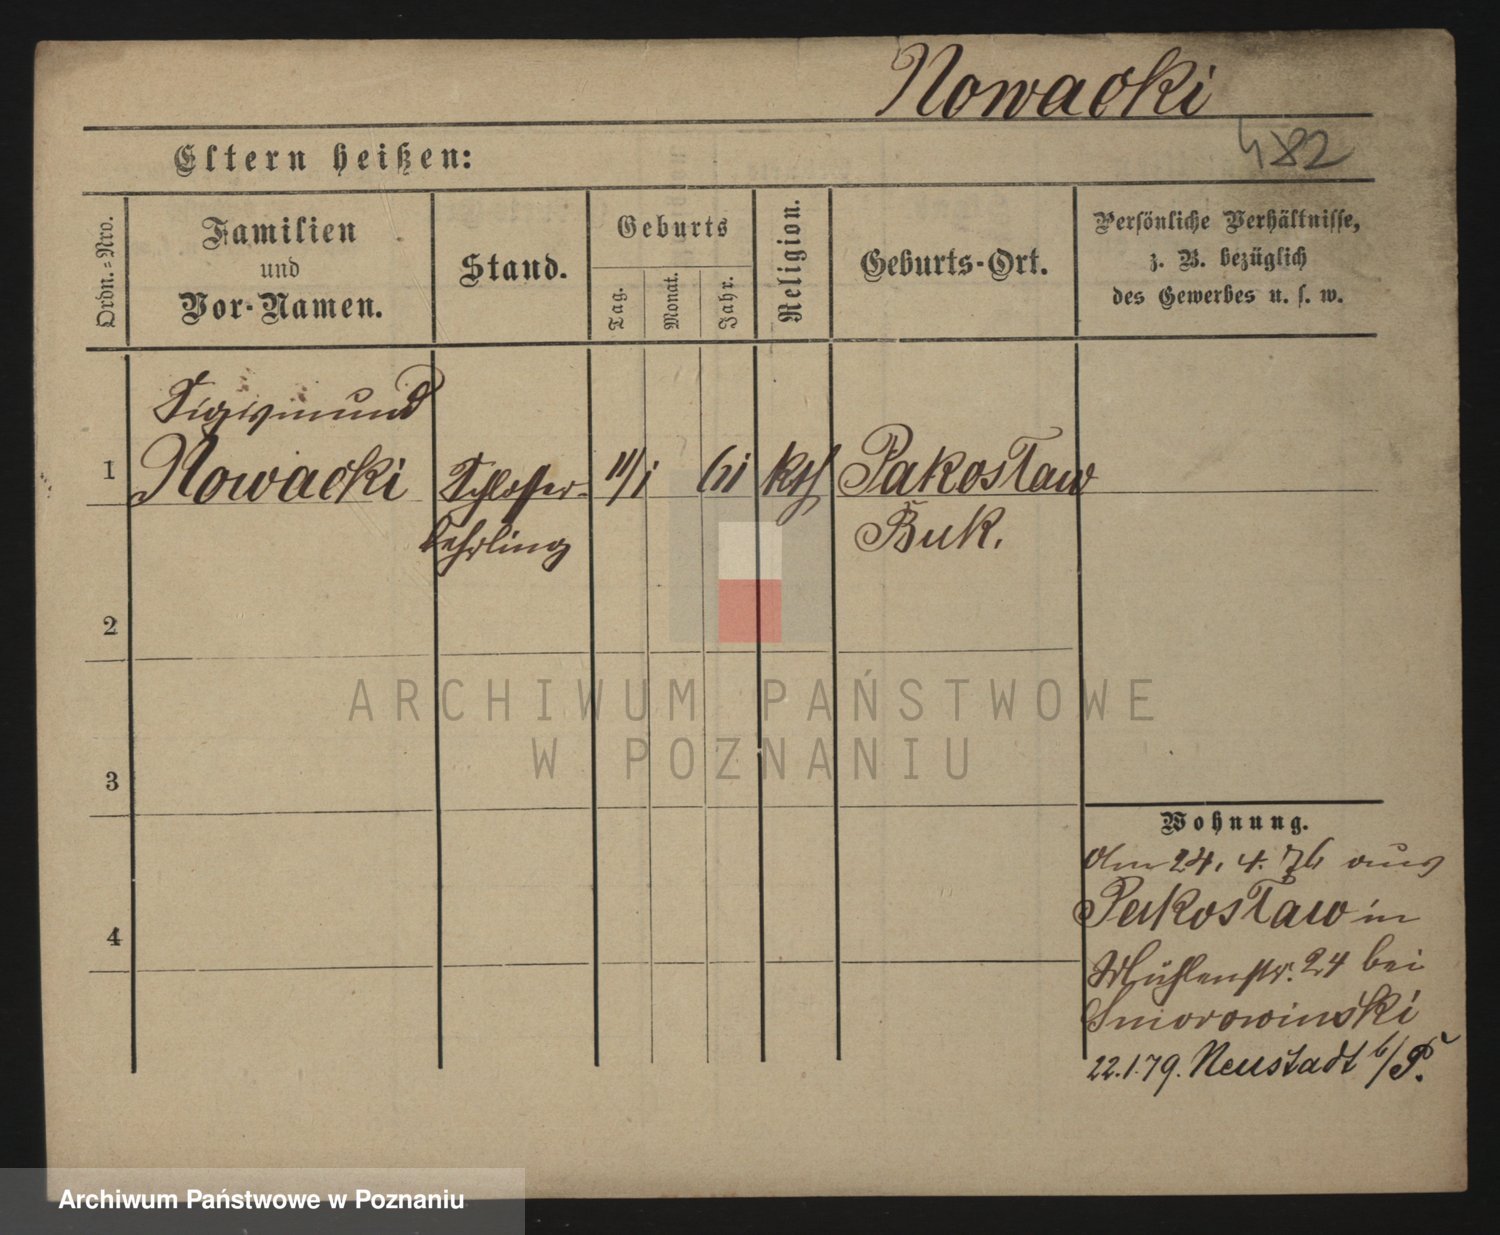 Nowacki
482
Eltern heißen:
Ordn.-Nro.
Familien
und
Vor-Namen.
Stand.
Geburts
Tag.
Monat.
Jahr.
Religion.
Geburts-Ort.
Persönliche Verhältnisse,
z. B. bezüglich
des Gewerbes u. s. w.
Sigismund
1 Nowacki Schlosser- 11/1 61 kth Pakosław
Lehrling Buk.
2
3
4
Wohnung.
Am 24. 4. 76 aus
Pakosław in
Mühlenstr. 24 bei
Smorowinski
22.1.79. Neustadt b/P.
ARCHIWUM PAŃSTWOWE
W POZNANIU
Archiwum Państwowe w Poznaniu